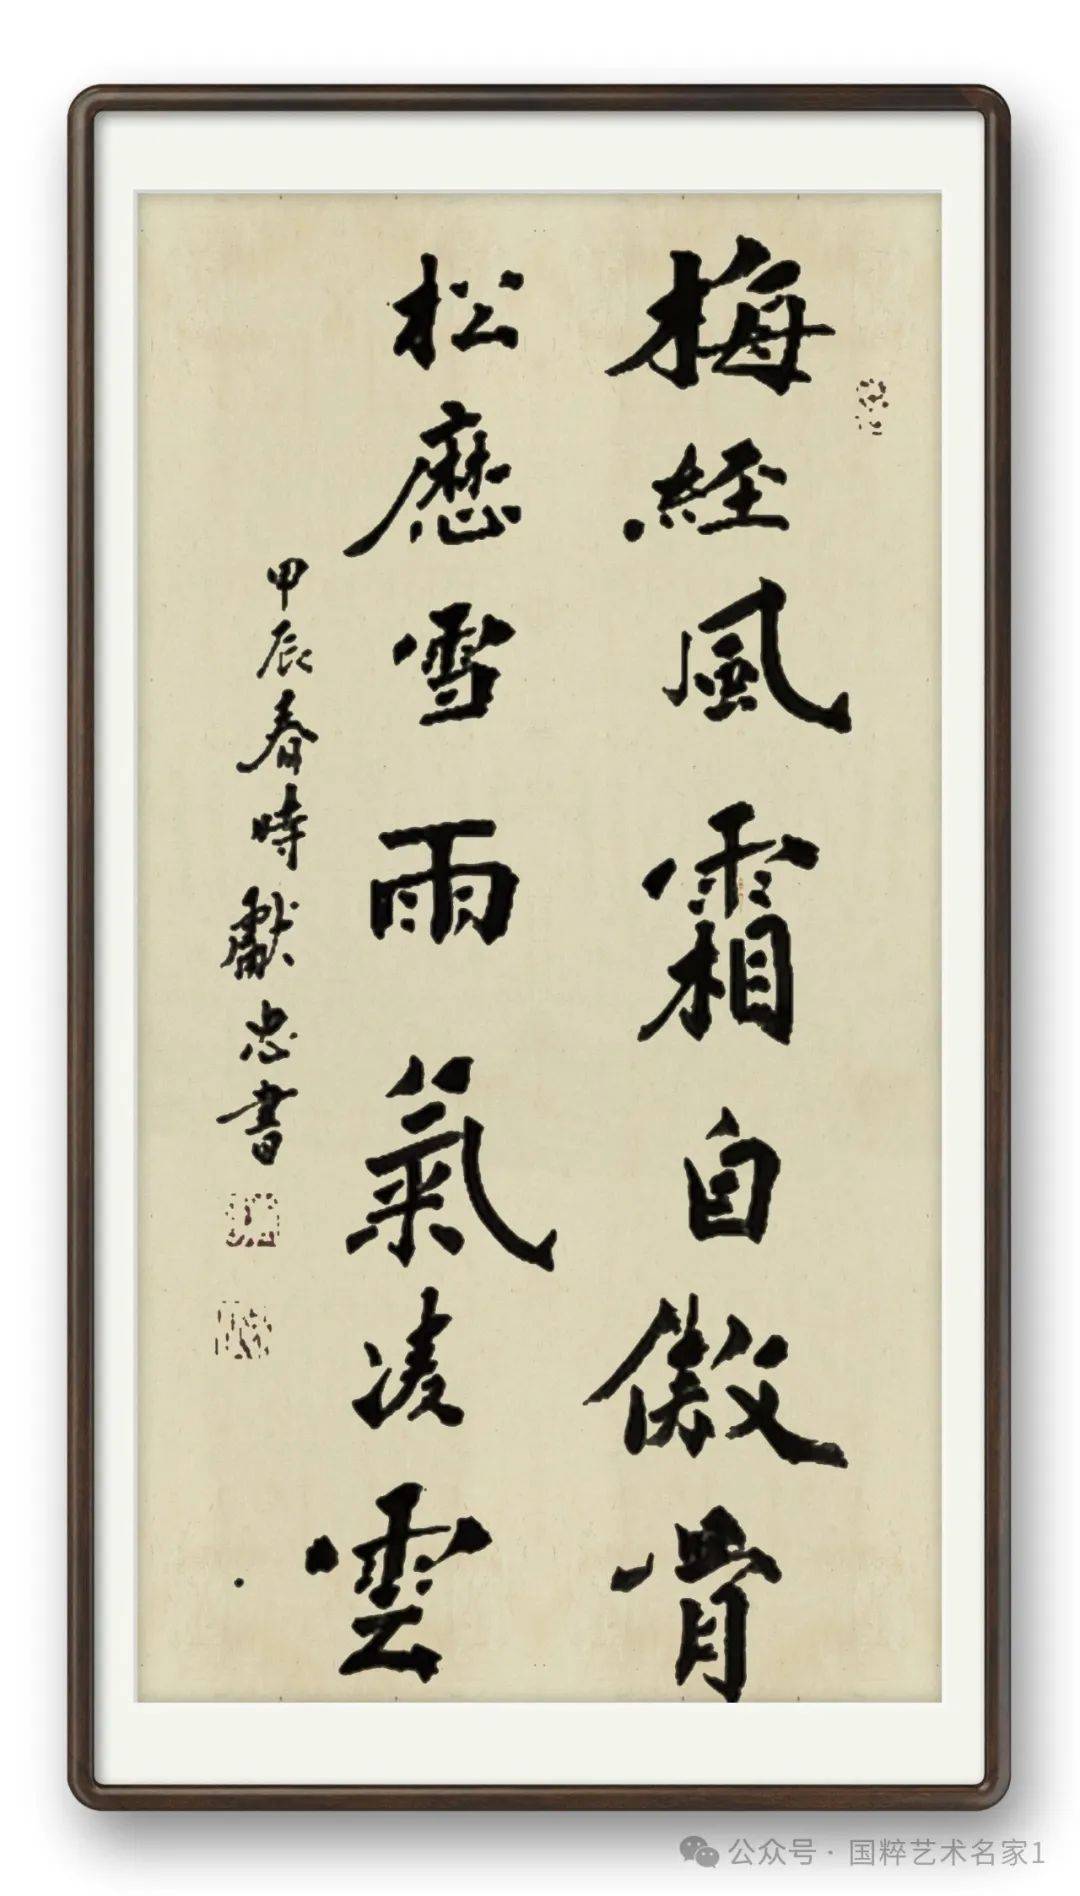 梅經風霜自傲骨
松歷雪雨氣凌雲
甲辰春時獻忠書
公众号·国粹艺术名家1